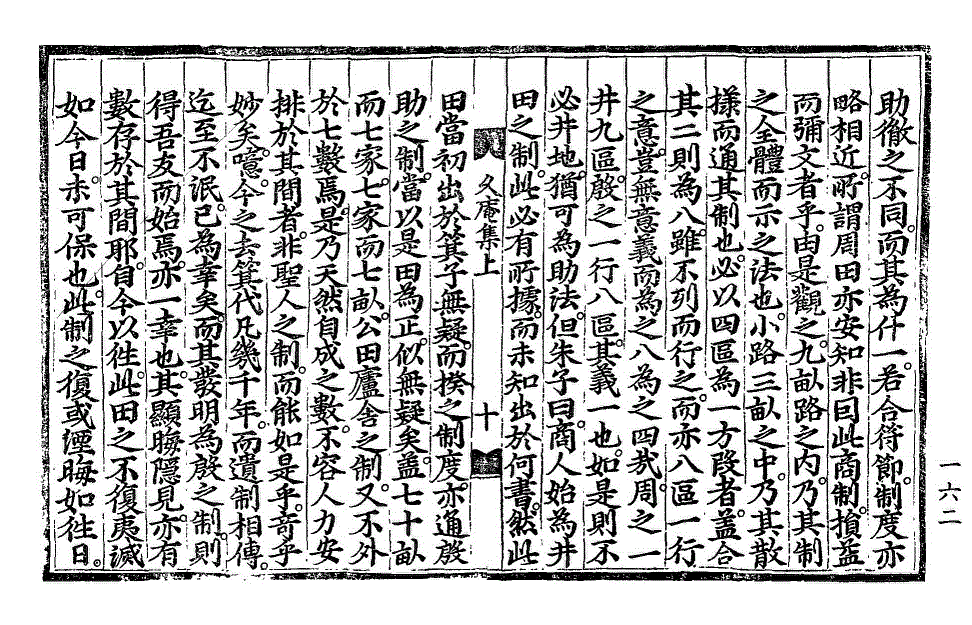 助徹之不同而其為什一若合符節制度亦
略相近所謂周田亦安知非因此商制損益
而彌文者乎由是觀之九畝路之内乃其制
之全體而示之法也小路三畝之中乃其散
樣而通其制也必以四區為一方段者盖合
其二則為八雖不列而行之而亦八區一行
之意豈無意義而為之八為之四㢤周之一
井九區殷之一行八區其義一也如是則不
必井地猶可為助法但朱子曰商人始為井
田之制此必有所據而未知出於何書然此
久庵集上
十
田當初出於箕子無疑而揆之制度亦通殷
助之制當以是田為正似無疑矣盖七十畝
而七家七家而七畝公田廬舍之制又不外
於七數焉是乃天然自成之數不容人力安
排於其間者非聖人之制而能如是乎奇乎
妙矣噫今之去箕代凡幾千年而遺制相傳
迄至不泯已為幸矣而其發明為殷之制則
得吾友而始焉亦一幸也其顯晦隱見亦有
數存於其間耶自今以徃此田之不復夷滅
如今日未可保也此制之復或湮晦如徃日
一六二